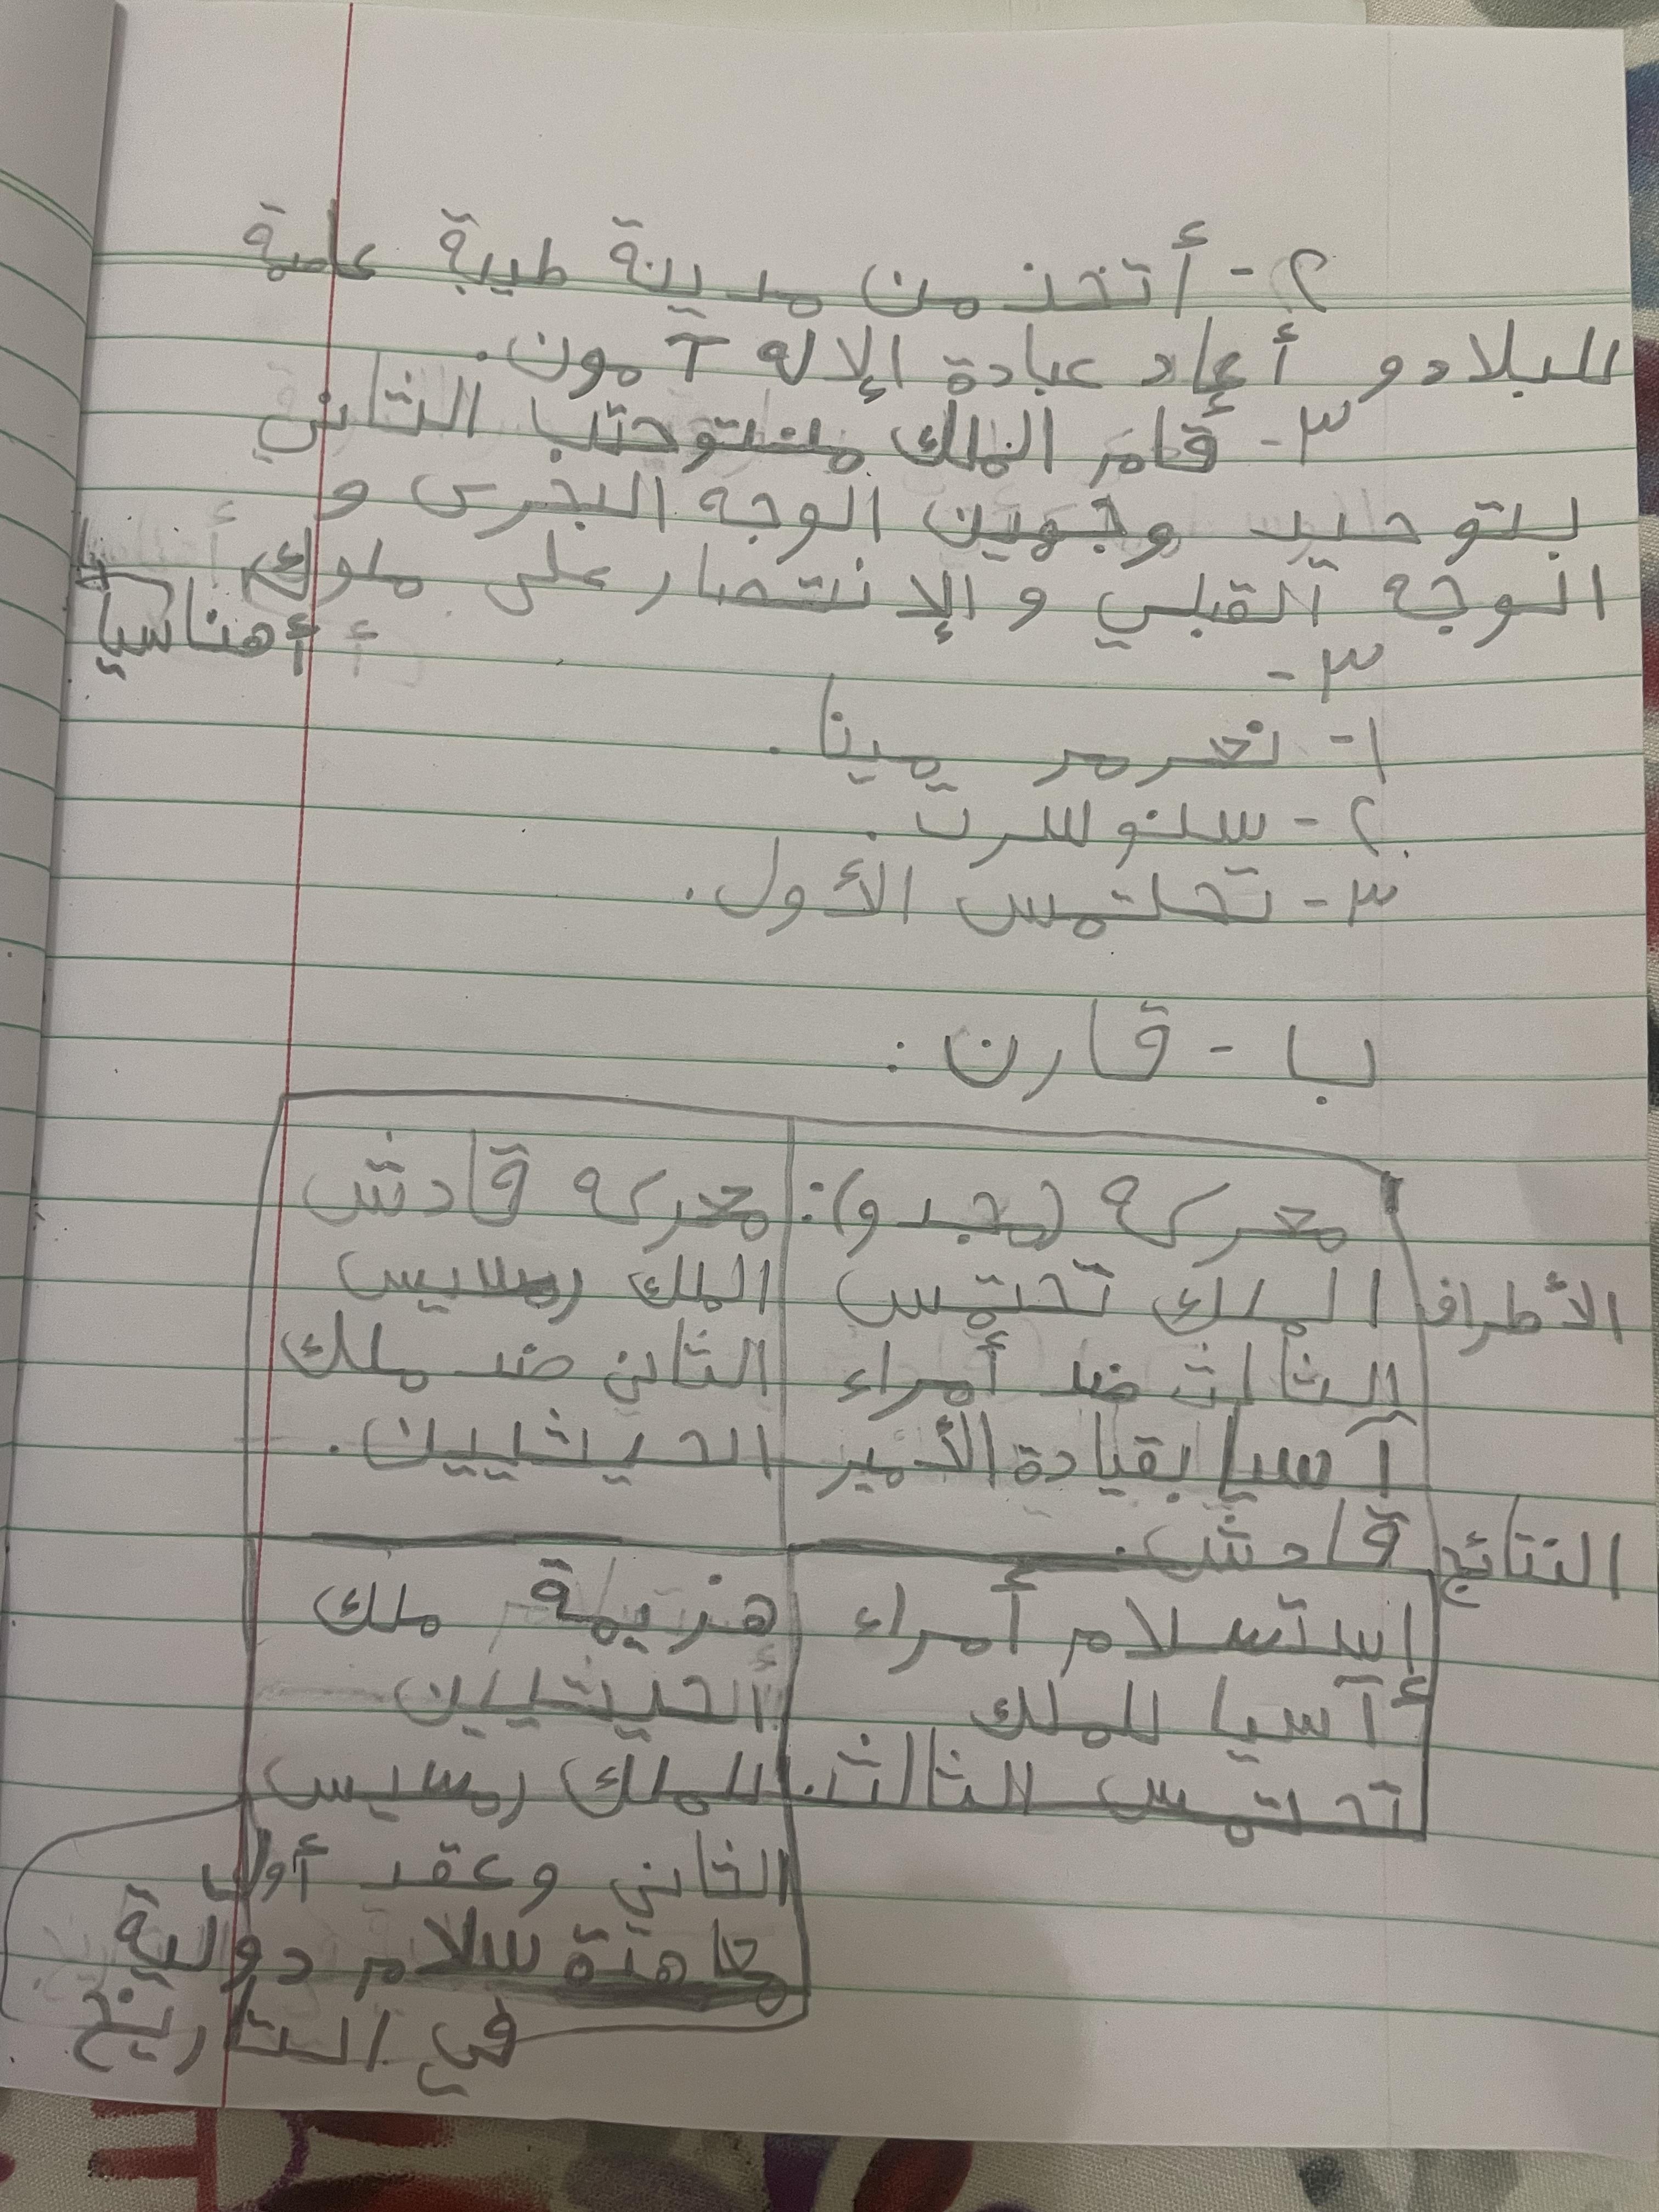 ٢- أتخذ من مدينة طيبة عاصمة
للبلاد و أعاد عبادة الإله آمون.
٣- قام الملك منتوحتب الثاني
بتوحيد وجهين الوجه البحرى و
الوجه القبلي و الإنتصار على ملوك
أهناسيا
٣-
١- نعرمر مينا.
٢- سنوسرت.
٣- تحتمس الأول.
ب - قارن :
معركه (مجدو): معركه قادش
الأطراف الملك تحتمس الملك رمسيس
الثالث ضد أمراء الثاني ضد ملك
آسيا بقيادة الأمير الحيثيين.
النتائج قادش.
إستسلام أمراء هزيمة ملك
آسيا للملك الحيثيين
تحتمس الثالث. للملك رمسيس
الثاني وعقد أول
معاهدة سلام دولية
في التاريخ